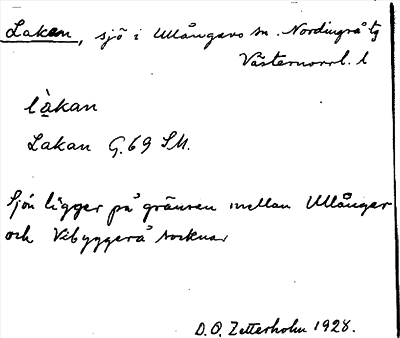 Lakan, sjö i Ullångers sn. Nordingrå tg
Västernorrl. l
là̱kan
Lakan G.69 SM.
Sjön ligger på gränsen mellan Ullånger
och Vibyggerå socknar
D.O. Zetterholm 1928.